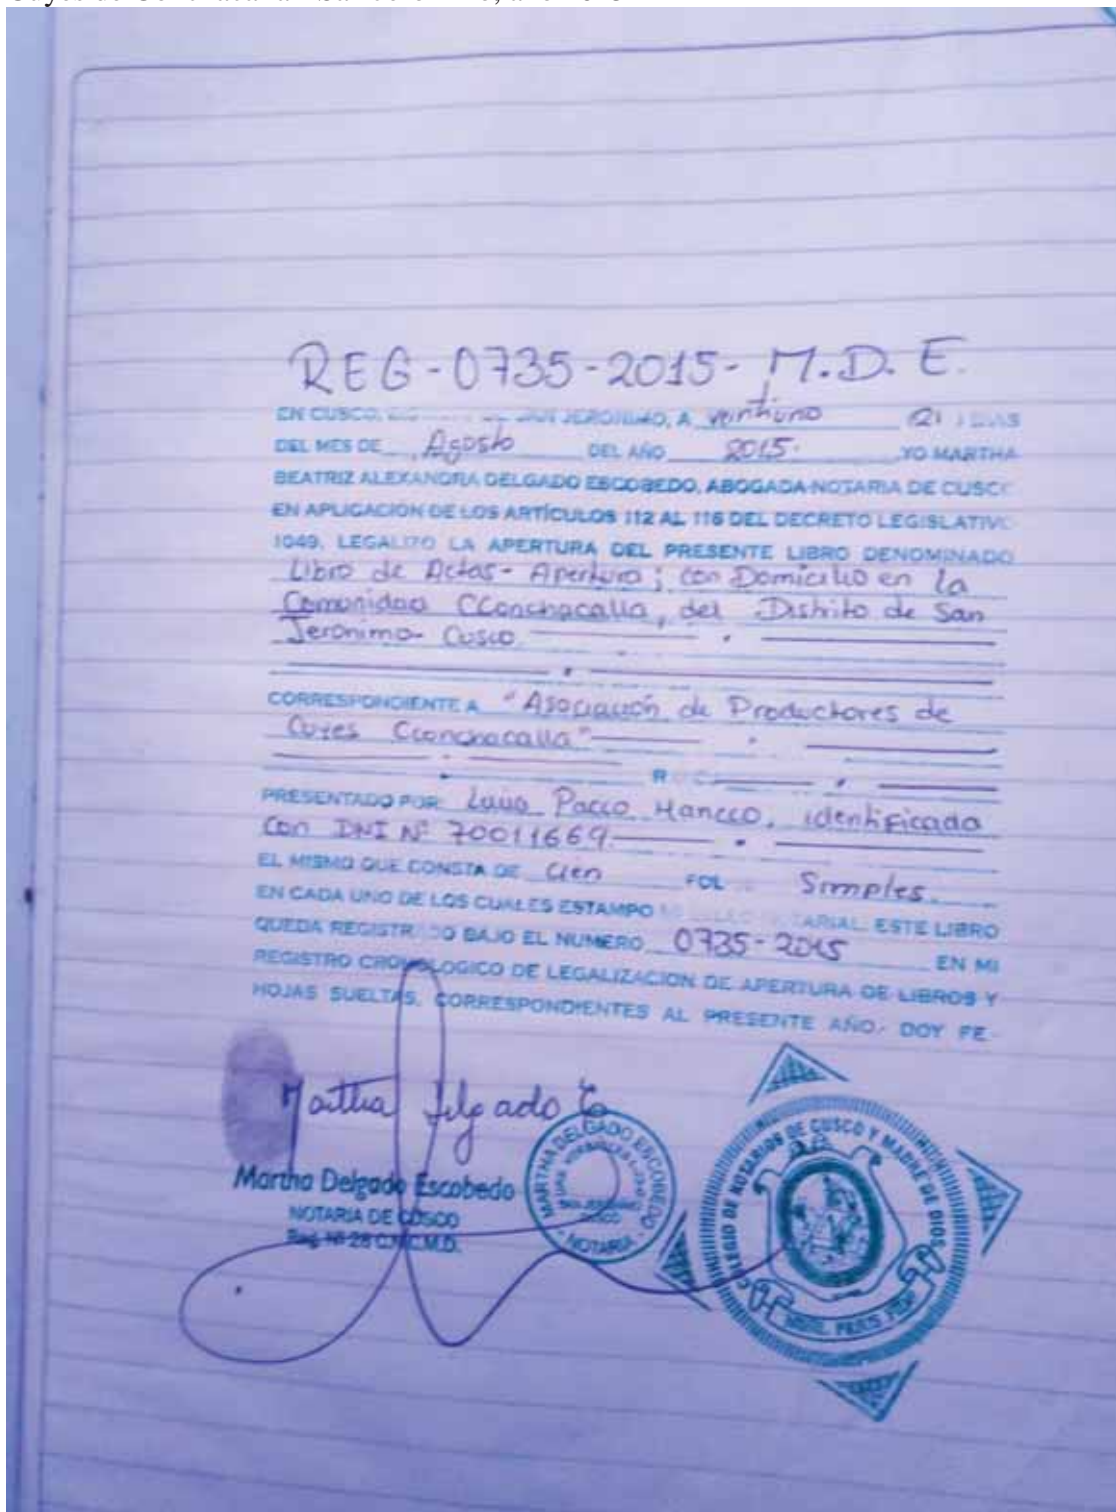 REG-0735-2015- M.D.E.
EN CUSCO, JERONIMO, A veintiuno (21) DIAS
DEL MES DE Agosto DEL AÑO 2015. YO MARTHA
BEATRIZ ALEXANDRA DELGADO ESCOBEDO, ABOGADA-NOTARIA DE CUSCO
EN APLICACIÓN DE LOS ARTÍCULOS 112 AL 116 DEL DECRETO LEGISLATIVO
1049, LEGALIZO LA APERTURA DEL PRESENTE LIBRO DENOMINADO
Libro de Actas- Apertura; con Domicilio en la
Comunidad CConchacalla, del Distrito de San
Jeronimo- Cusco.
CORRESPONDIENTE A "Asociación de Productores de
Cuyes Cconchacalla"
PRESENTADO POR: Pacco Mancco, identificada
con DNI Nº 70011669.
EL MISMO QUE CONSTA DE Cien FOL Simples.
EN CADA UNO DE LOS CUALES ESTAMPO NOTARIAL. ESTE LIBRO
QUEDA REGISTRADO BAJO EL NUMERO 0735-2015 EN MI
REGISTRO CRONOLOGICO DE LEGALIZACION DE APERTURA DE LIBROS Y
HOJAS SUELTAS, CORRESPONDIENTES AL PRESENTE AÑO, DOY FE.
Martha Delgado E
Martha Delgado Escobedo
NOTARIA DE CUSCO
Reg. Nº 28 C.N.C.M.D.
MARTHA DELGADO ESCOBEDO
NOTARIA
COLEGIO DE NOTARIOS DE CUSCO Y MADRE DE DIOS